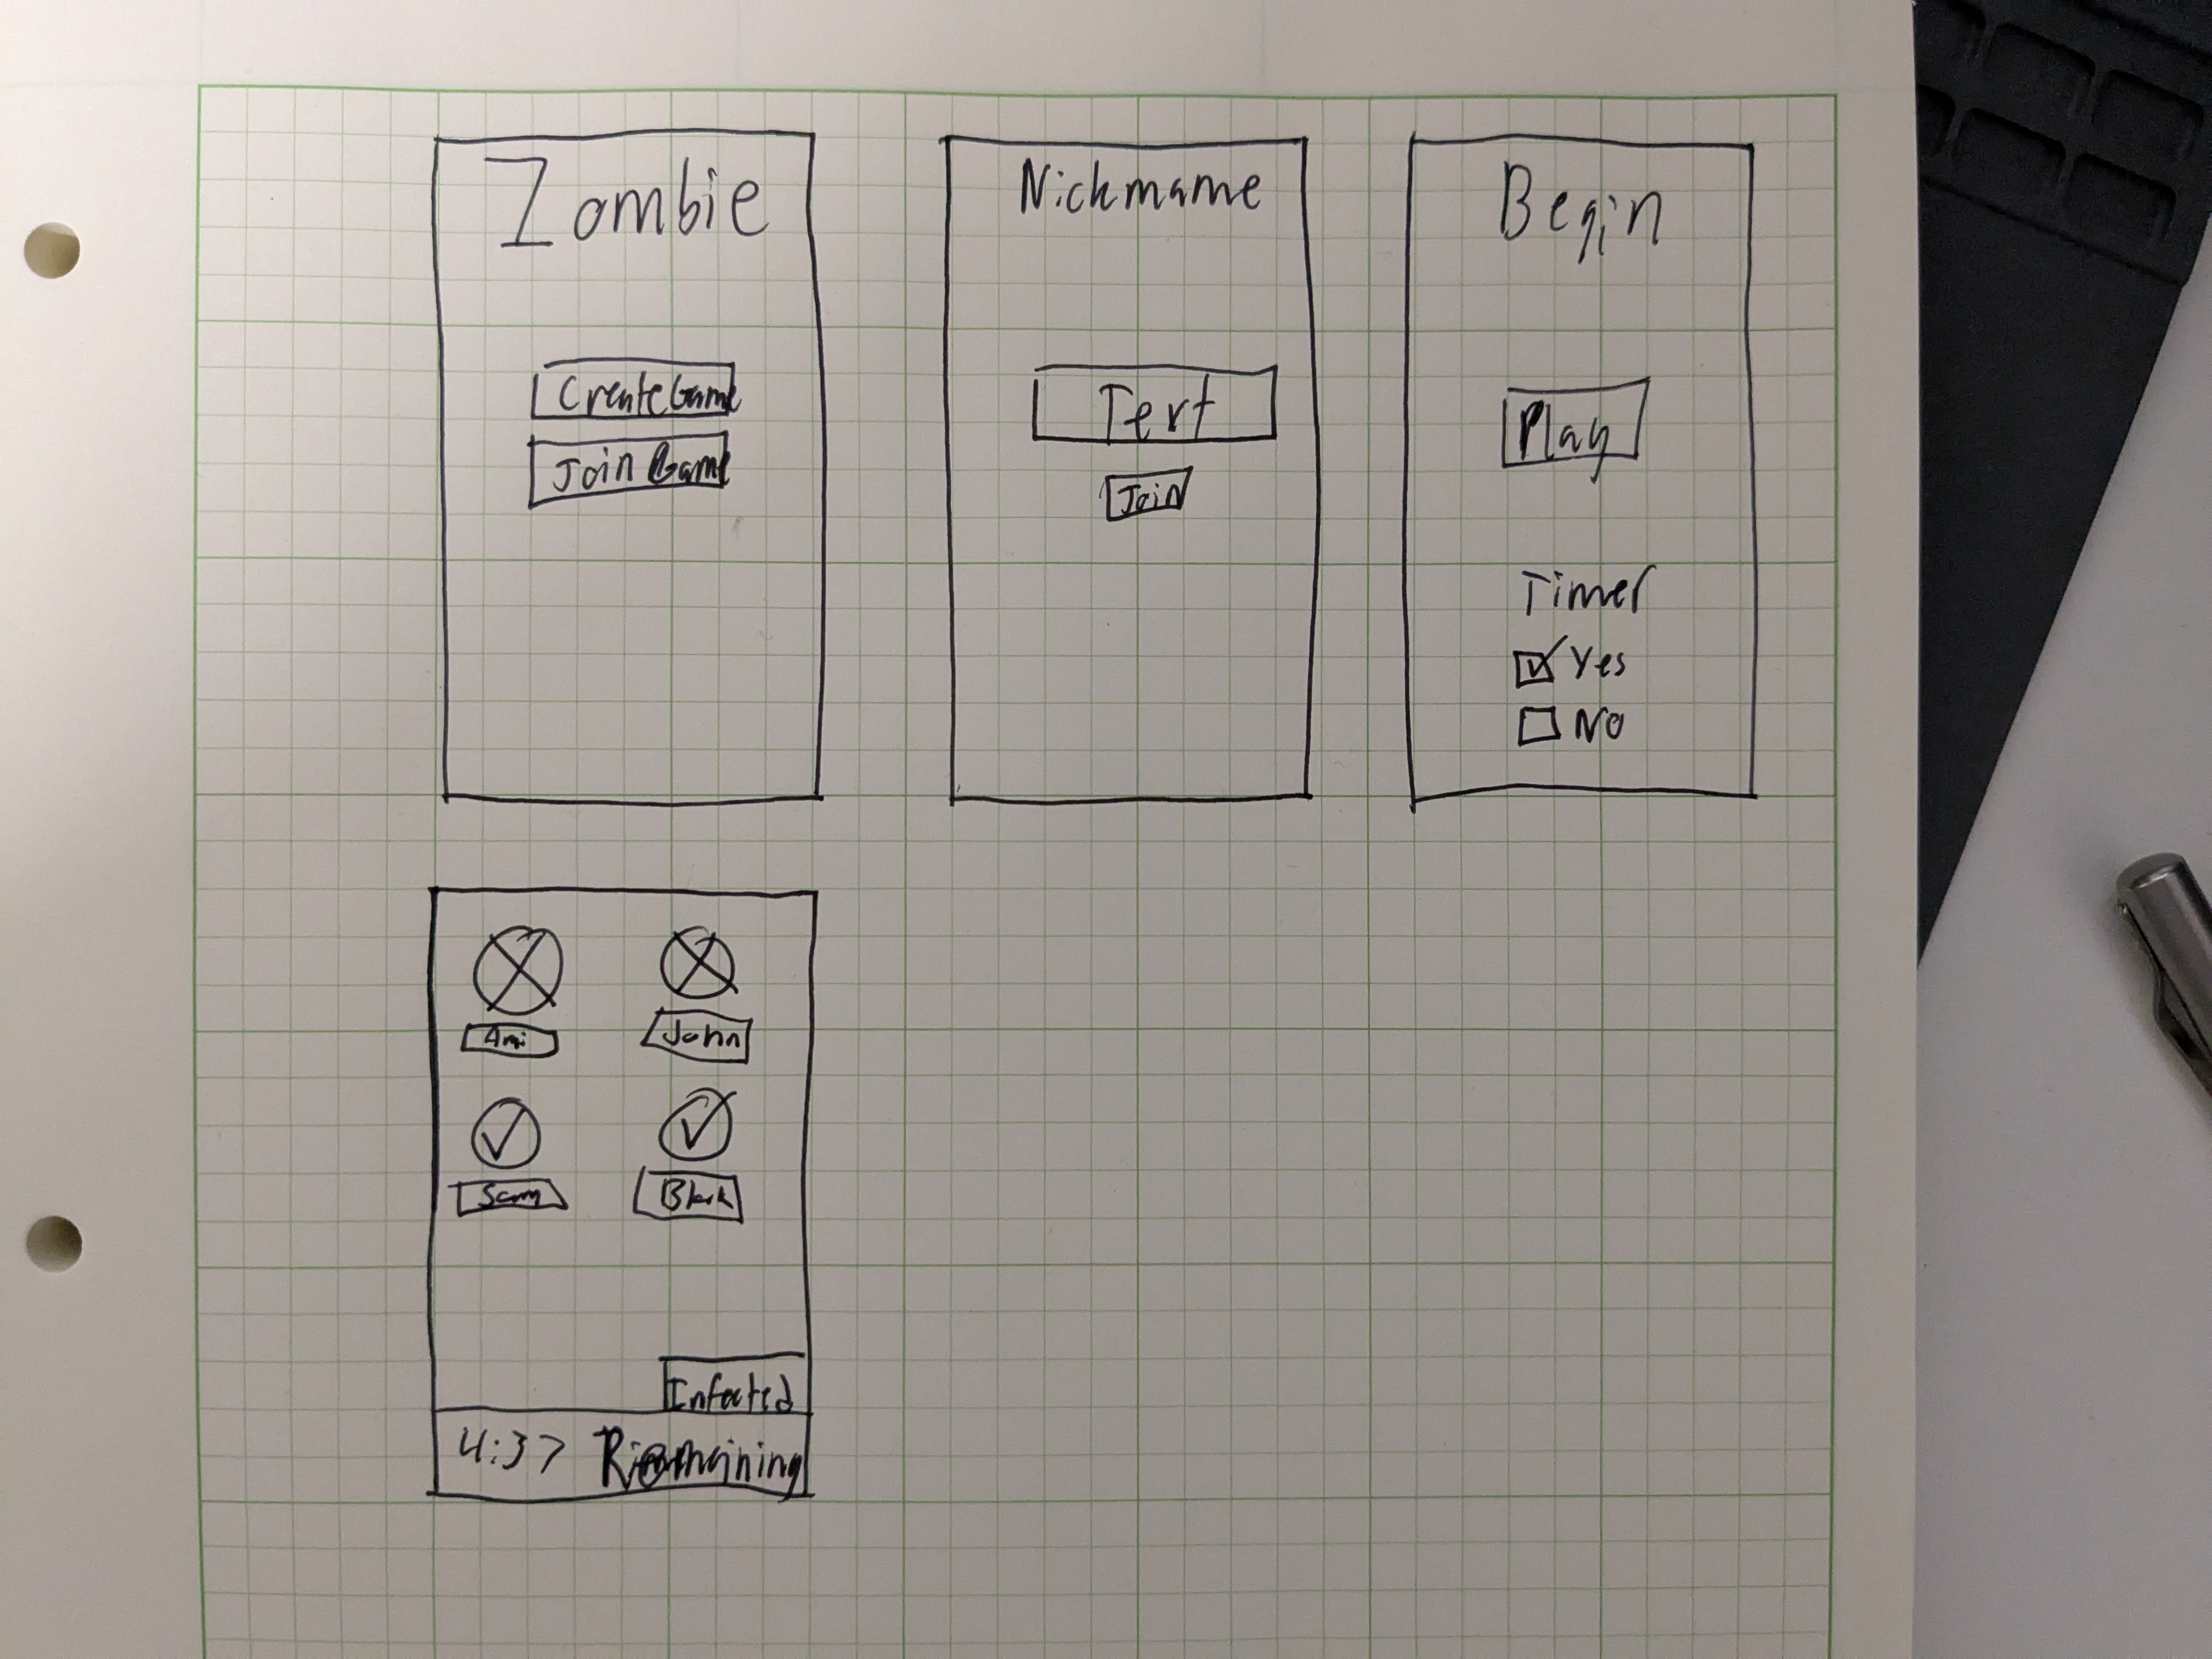 Zombie
Create Game
Join Game
Nickmame
Text
Join
Begin
Play
Timer
Yes
No
Ami
John
Sam
Infected
4:37 Remaining